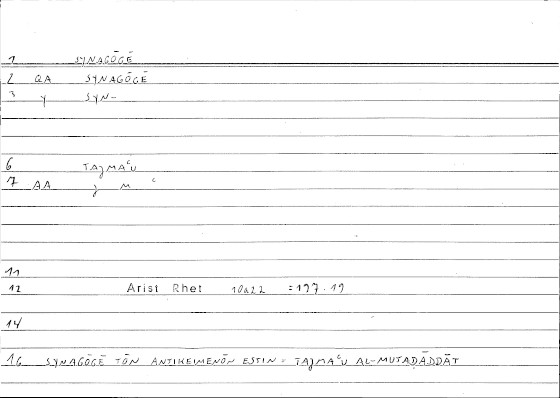 1 SYNAGŌGĒ
2 QA SYNAGŌGĒ
3 γ SYN-
6 TAJMAʿU
7 AA J M ʿ
11
12 Arist Rhet 10a22 =197.19
14
16 SYNAGŌGĒ TŌN ANTIKEIMENŌN ESTIN = TAJMAʿU AL-MUTAḌĀDDĀT